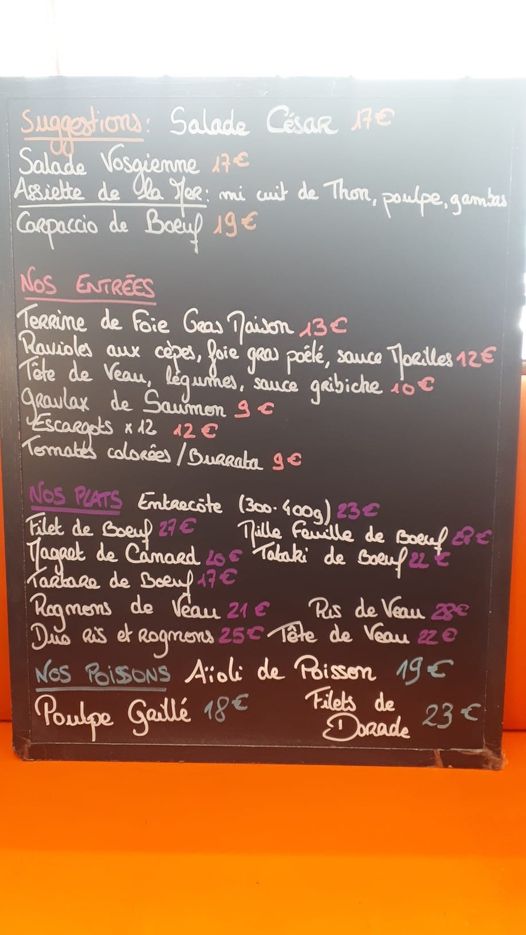 Suggestions: Salade César 17€
Salade Vosgienne 17€
Assiette de la Mer: mi cuit de Thon, poulpe, gambas
Carpaccio de Boeuf 19€
NOS ENTRÉES
Terrine de Foie Gras Maison 13€
Ravioles aux cèpes, foie gras poêlé, sauce Morilles 12€
Tête de Veau, légumes, sauce gribiche 10€
Gravlax de Saumon 9€
Escargots x12 12€
Tomates colorées / Burrata 9€
NOS PLATS Entrecôte (300-400g) 23€
Filet de Boeuf 27€ Mille Feuille de Boeuf 28€
Magret de Canard 20€ Tataki de Boeuf 22€
Tartare de Boeuf 17€
Rognons de Veau 21€ Ris de Veau 28€
Duo Ris et Rognons 25€ Tête de Veau 22€
NOS POISSONS Aïoli de Poisson 19€
Poulpe Grillé 18€ Filets de Dorade 23€